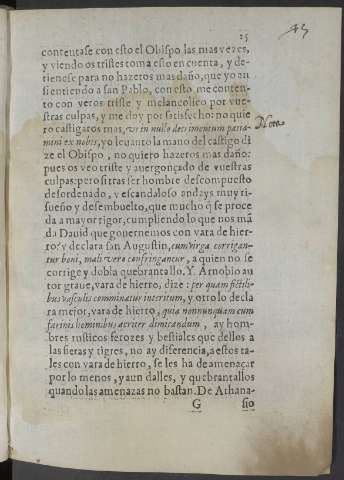 25
45
contentase con esto el Obispo las mas vezes,
y viendo os tristes toma esto en cuenta, y de-
tienese para no hazeros mas daño, que yo an
si entiendo a san Pablo, con esto me conten-
to con veros triste y melancolico por vue-
stras culpas, y me doy por satisfecho: no quie
ro castigaros mas, ut in nullo detrimentum patia-
mini ex nobis, yo levanto la mano del castigo di
ze el Obispo, no quiero hazeros mas daño:
pues os veo triste y avergonçado de vuestras
culpas: pero si tras ser hombre descompuesto
desordenado, y escandaloso andays muy ri-
sueño y desembuelto, que mucho q̃ se proce
da a mayor rigor, cumpliendo lo que nos mã
da Dauid que gouernemos con vara de hier-
ro? y declara san Augustin, cum virga corrigan-
tur boni, mali vero confringantur, a quien no se
corrige y dobla quebrantallo. Y Arnobio au
tor graue, vara de hierro, dize: per quam fictili-
bus vasculis comminatur interitum, y otro lo decla
ra mejor, vara de hierro, quia nonnunquam cum
farinis hominibus acriter dimicandum, ay hom-
bres rusticos ferozes y bestiales que dellos a
las fieras y tigres, no ay diferencia, a estos ta-
les con vara de hierro, se les ha de amenaçar
por lo menos, y aun dalles, y quebrantallos
quando las amenazas no bastan. De Athana-
G sio
Nota